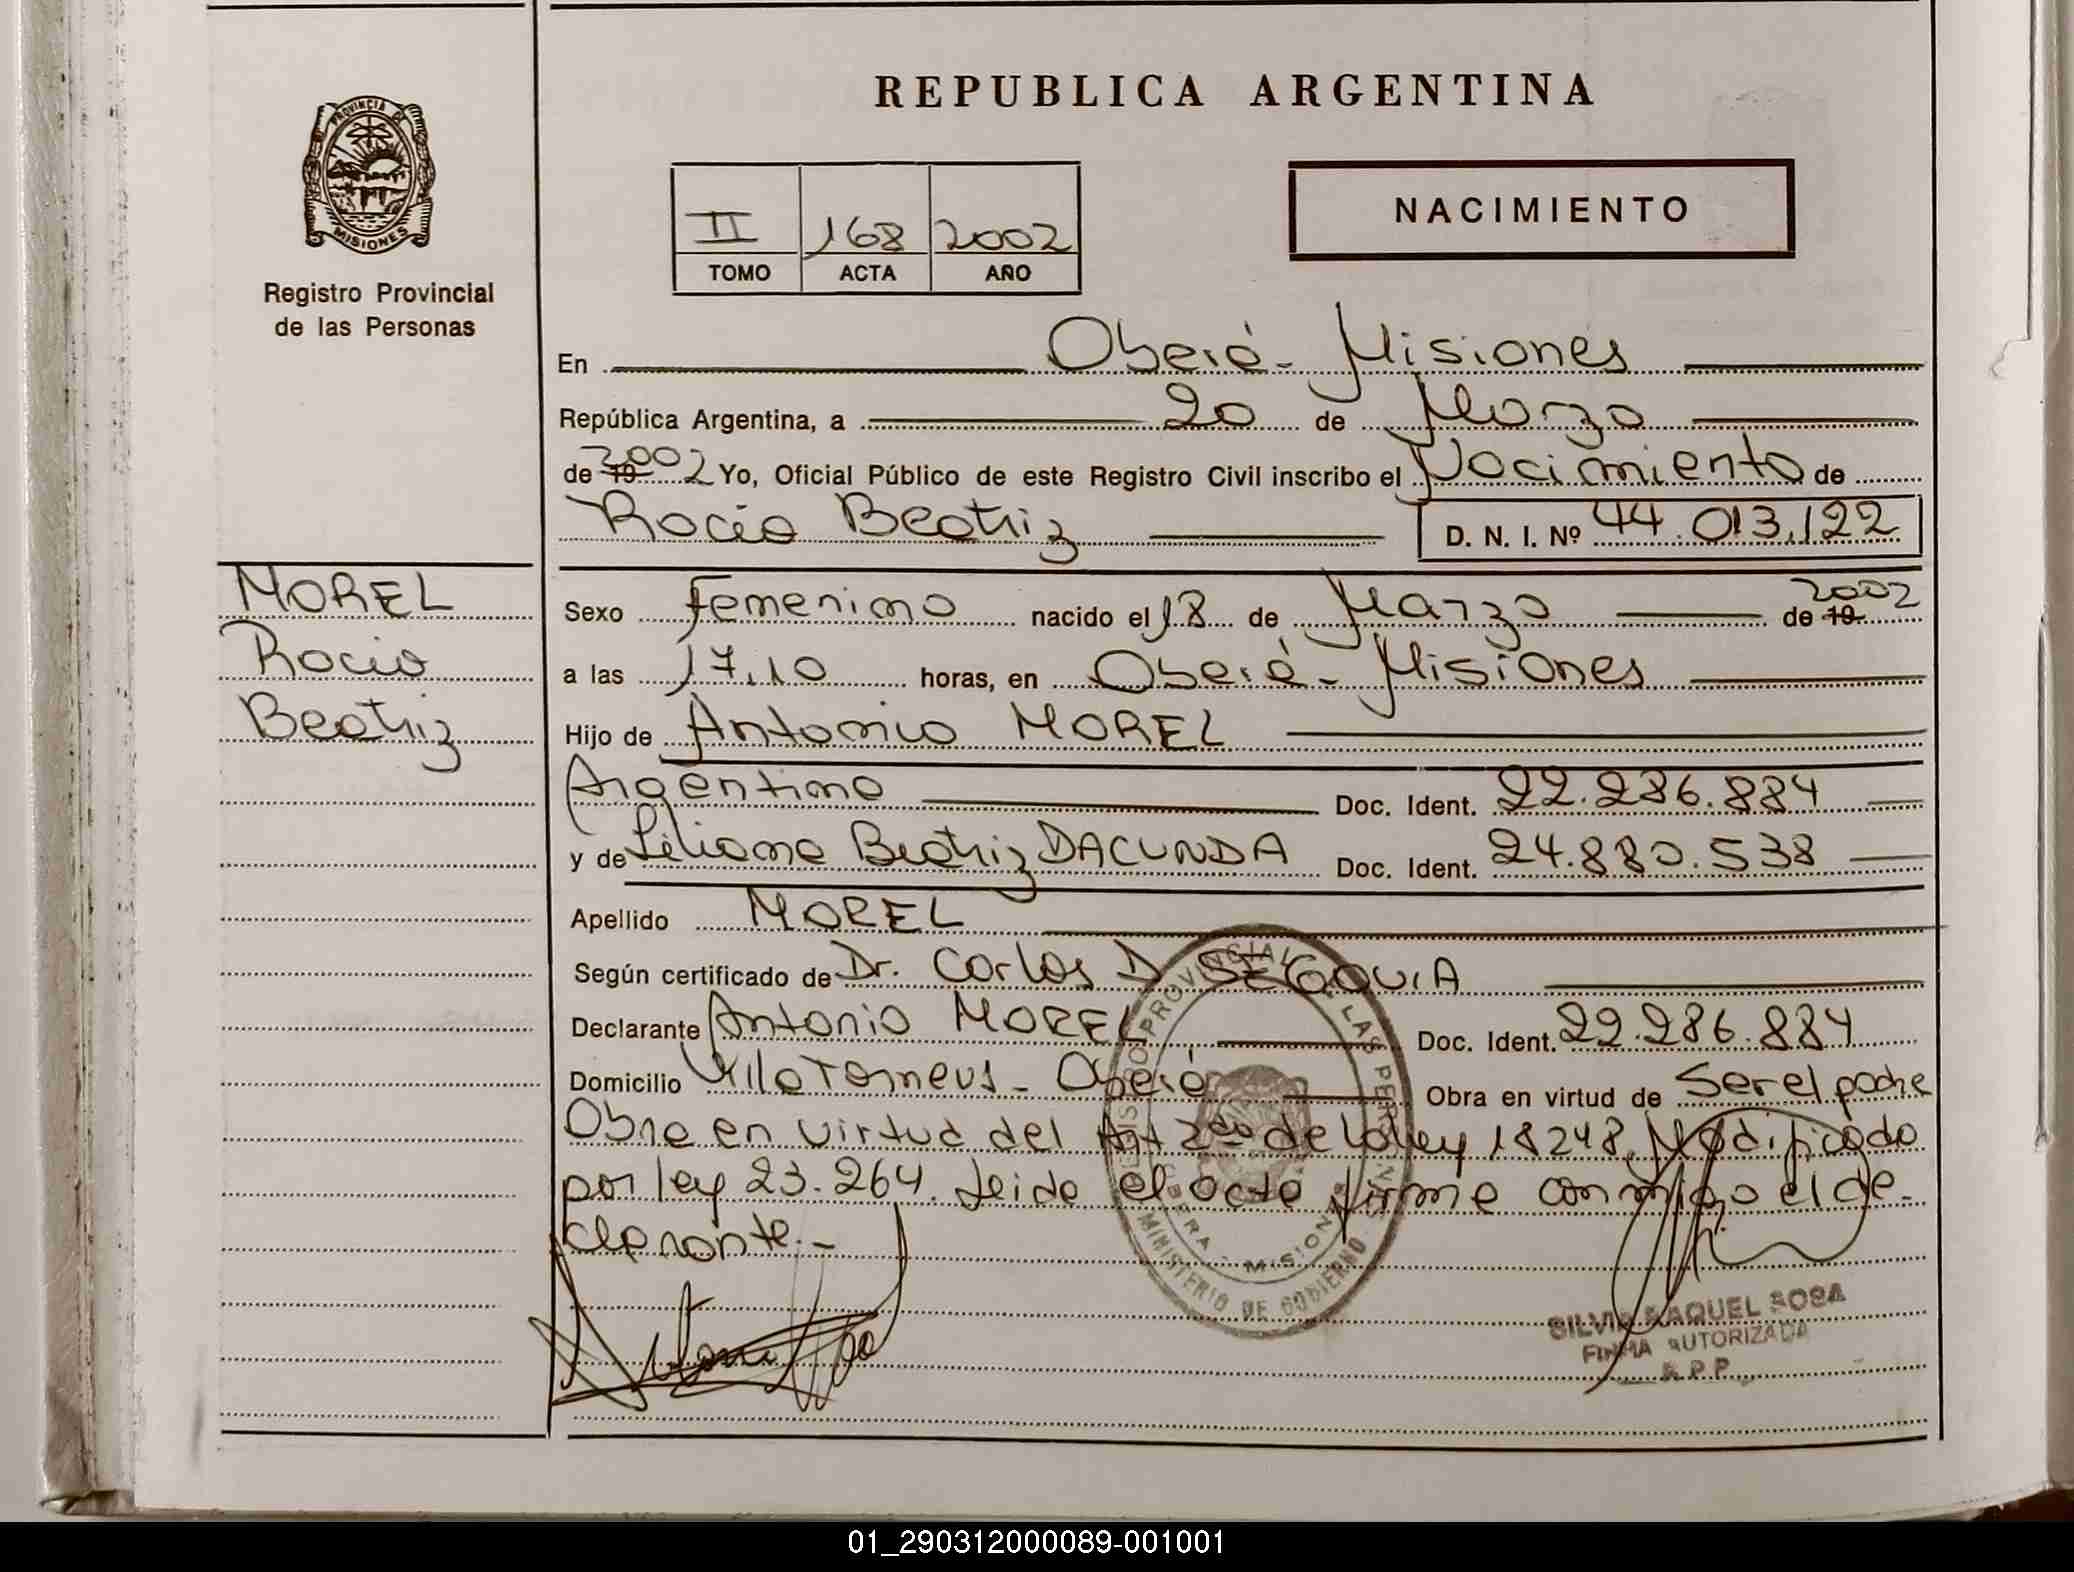 REPUBLICA ARGENTINA
PROVINCIA DE
MISIONES
Registro Provincial
de las Personas
II 168 2002
TOMO ACTA AÑO
NACIMIENTO
En Oberá - Misiones
República Argentina, a 20 de Marzo
de 19 2002 Yo, Oficial Público de este Registro Civil inscribo el Nacimiento de
Rocío Beatriz D. N. I. Nº 44.013.122
MOREL
Rocio
Beatriz
Sexo Femenino nacido el 18 de Marzo de 19 2002
a las 17.10 horas, en Oberá - Misiones
Hijo de Antonio MOREL
Argentino Doc. Ident. 22.286.884
y de Liliana Beatriz DACUNDA Doc. Ident. 24.880.538
Apellido MOREL
Según certificado de Dr. Carlos D SEGOVIA
Declarante Antonio MOREL Doc. Ident. 22.286.884
Domicilio Oberá Obra en virtud de Ser el padre
Obra en virtud del Art 2do de la ley 18248, Modificado
por ley 23.264. Leida el acta firma conmigo el de-
clarante.-
MINISTERIO DE GOBIERNO
MISIONES
SILVIA RAQUEL SOSA
FIRMA AUTORIZADA
R.P.P.
01_290312000089-001001